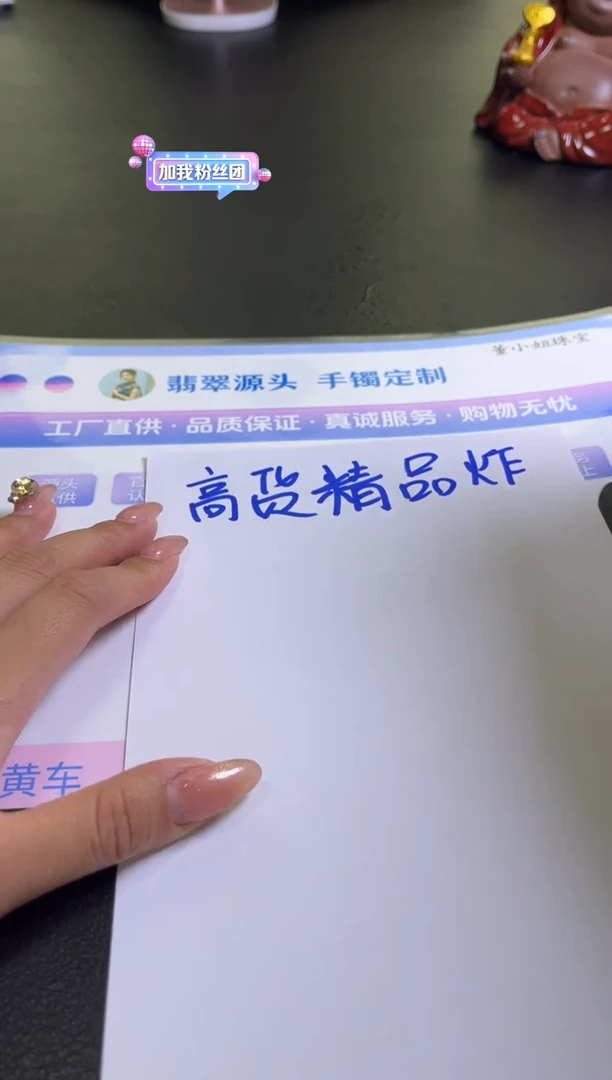 加我粉丝团
董小姐珠宝
翡翠源头 手镯定制
工厂直供·品质保证·真诚服务·购物无忧
源头
供
高货精品炸
黄车